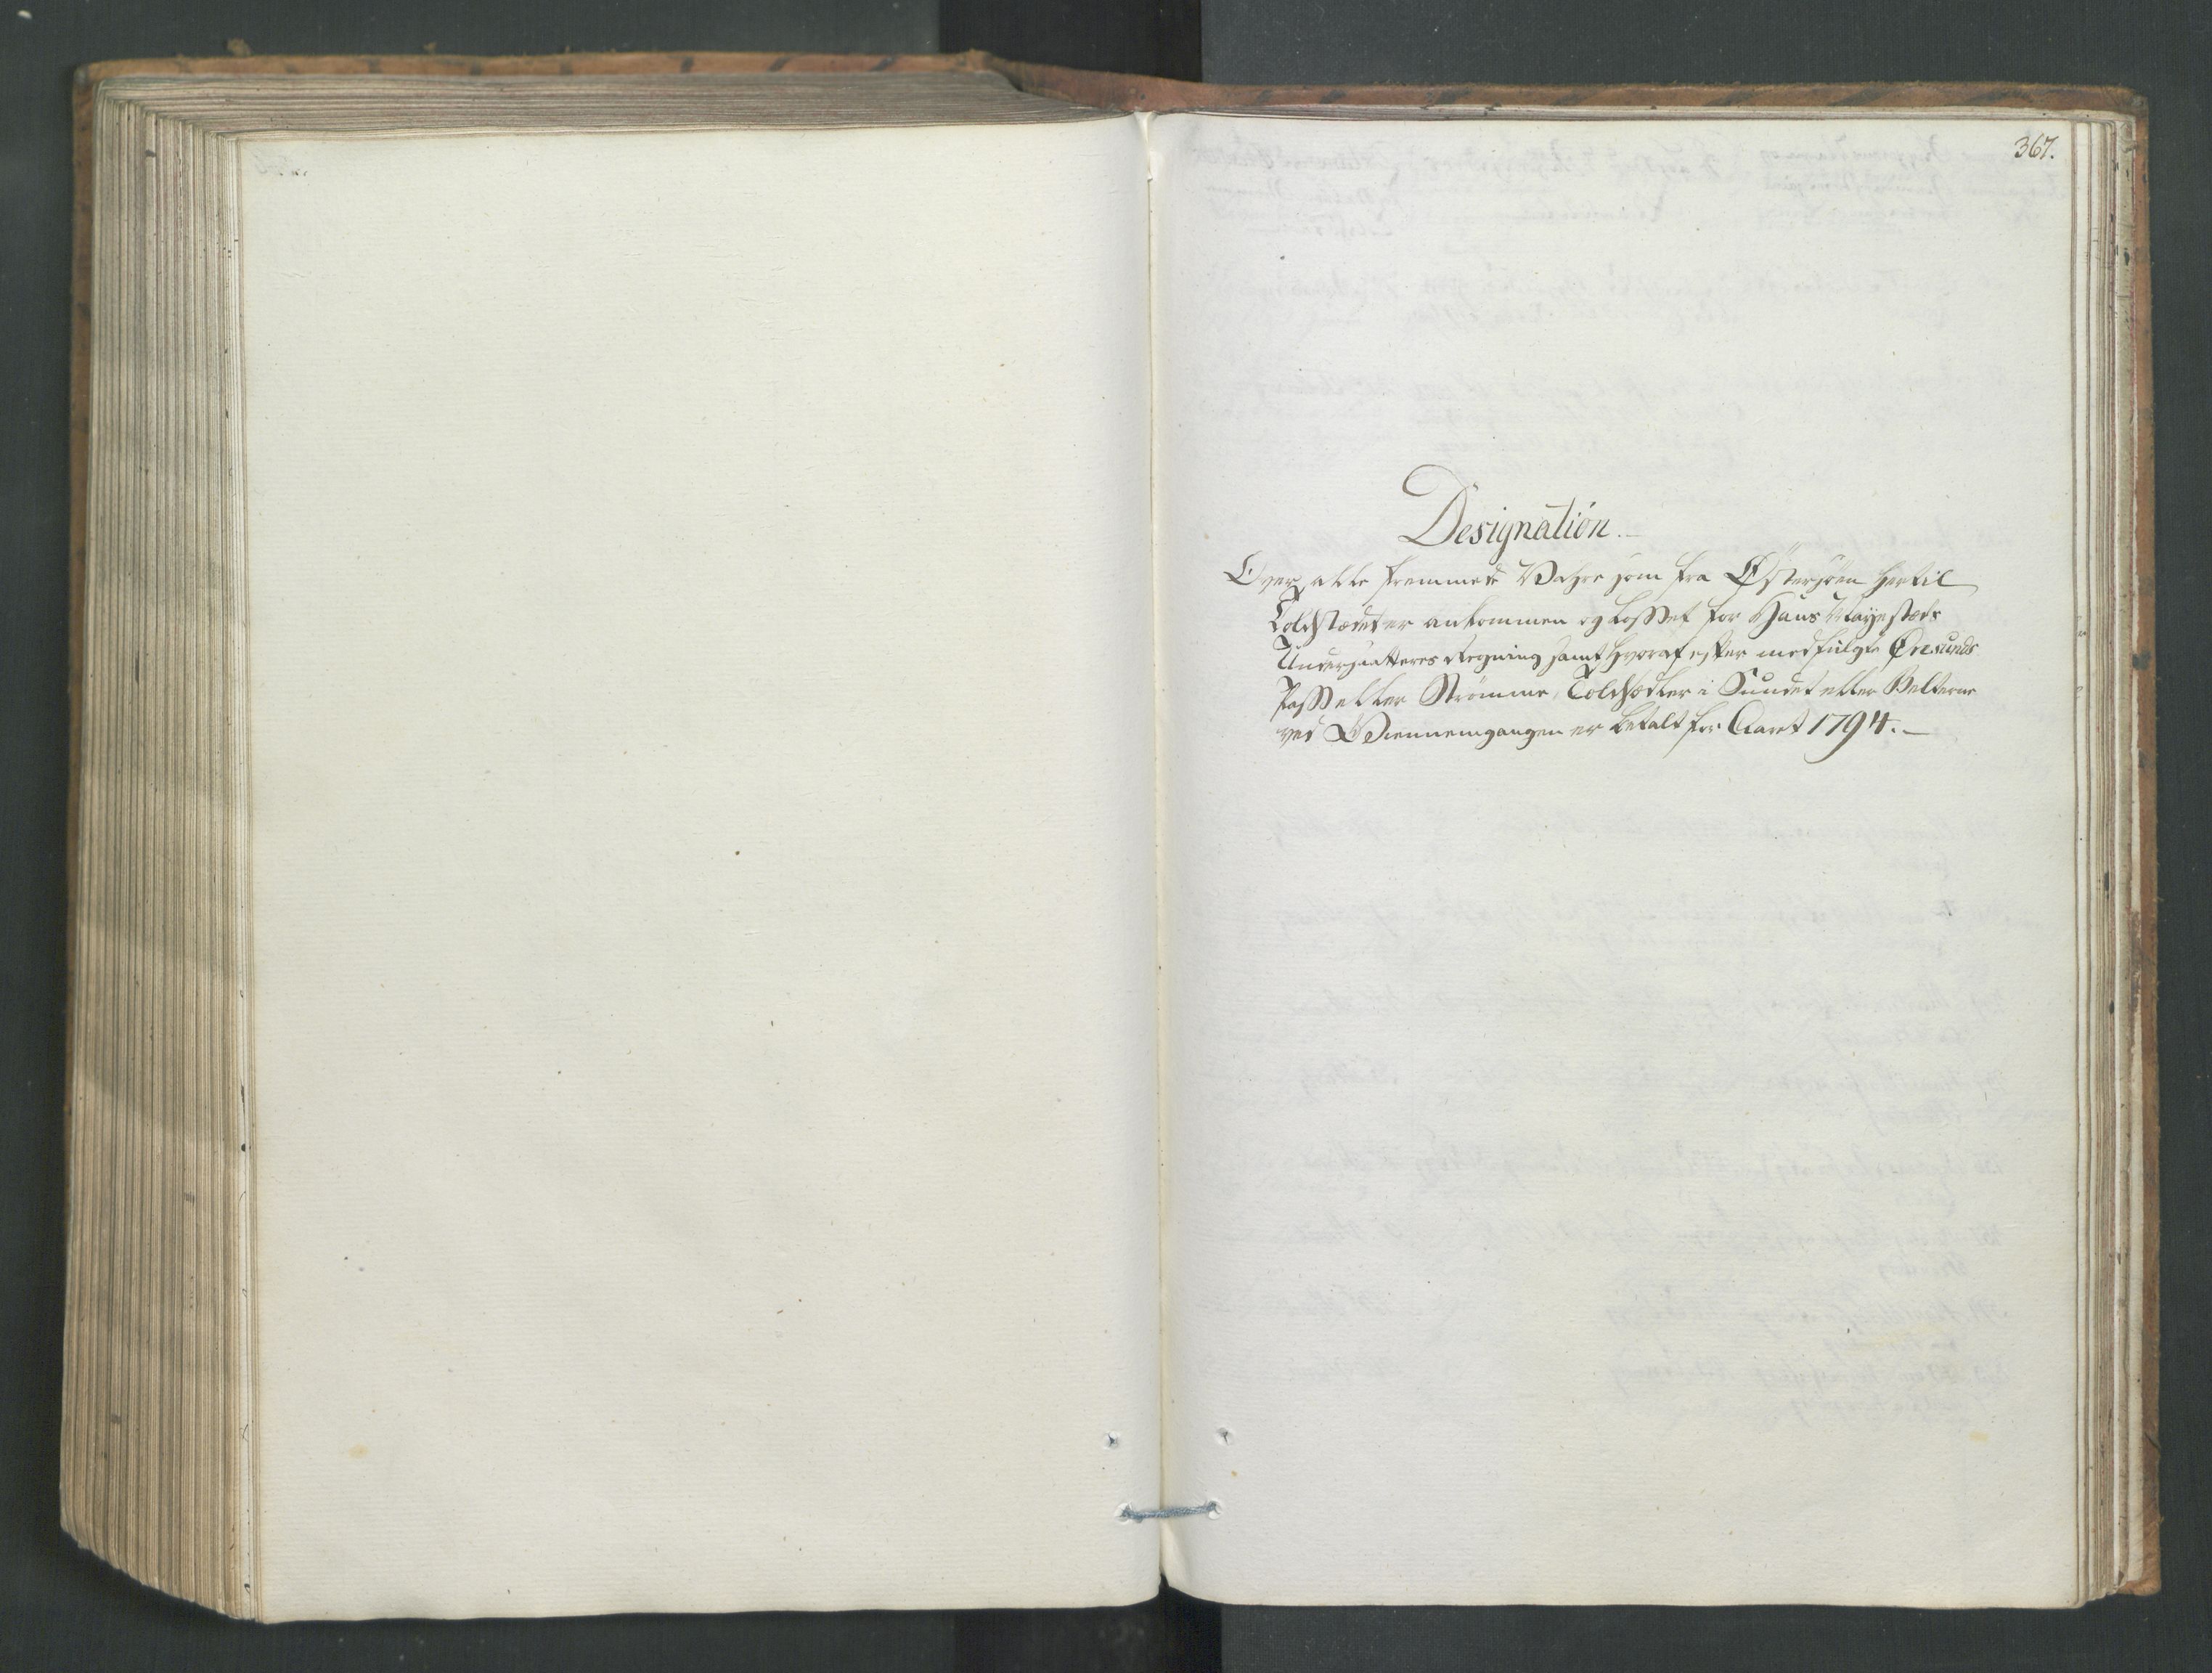 367.
Designation.
Over alle fremmede Vahre som fra Østersöen hertil
Toldstædet er ankommen og losset for Hans Mayestæts
Undersaatteres Regning samt hvoraf efter medfulgte Øresunds
Pass eller Strømme Toldsedler i Sundet eller Belterne
ved Giennemgangen er betalt for Aaret 1794.